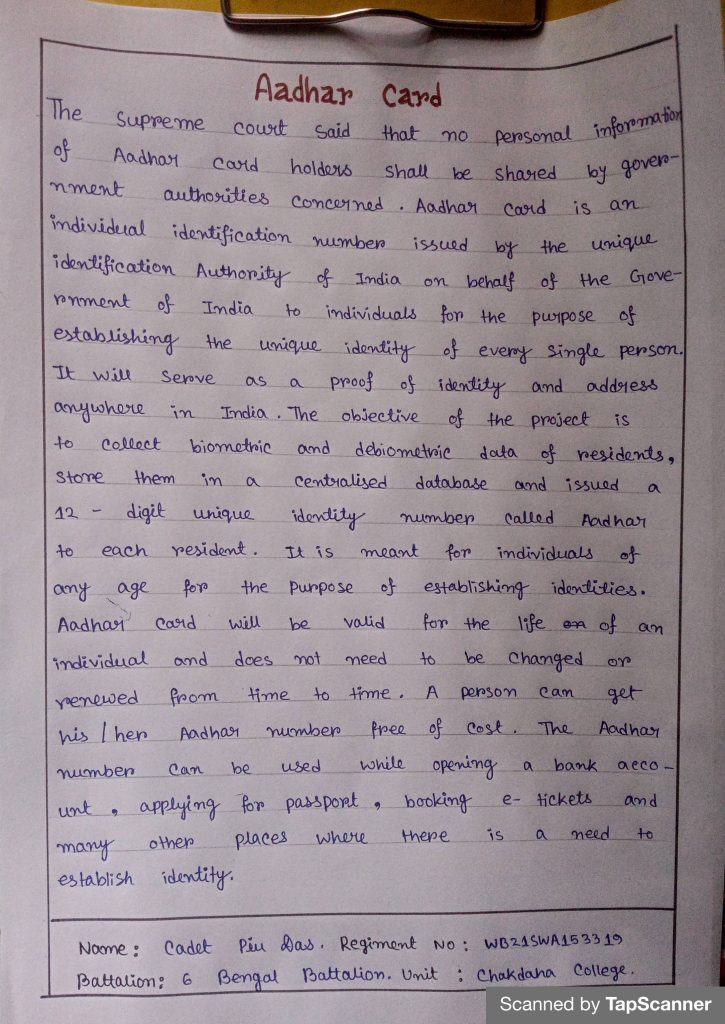 Aadhar Card
The Supreme court said that no personal information
of Aadhar card holders shall be shared by gover-
nment authorities concerned. Aadhar card is an
individual identification number issued by the unique
identification Authority of India on behalf of the Gove-
rnment of India to individuals for the purpose of
establishing the unique identity of every single person.
It will serve as a proof of identity and address
anywhere in India. The objective of the project is
to collect biometric and debiometric data of residents,
store them in a centralised database and issued a
12 - digit unique identity number called Aadhar
to each resident. It is meant for individuals of
any age for the purpose of establishing identities.
Aadhar card will be valid for the life of an
individual and does not need to be changed or
renewed from time to time. A person can get
his / her Aadhar number free of cost. The Aadhar
number can be used while opening a bank acco-
unt, applying for passport, booking e-tickets and
many other places where there is a need to
establish identity.
Name: Cadet Piu Das. Regiment No: WB21SWA153319
Battalion: 6 Bengal Battalion. Unit : Chakdaha College.
Scanned by TapScanner